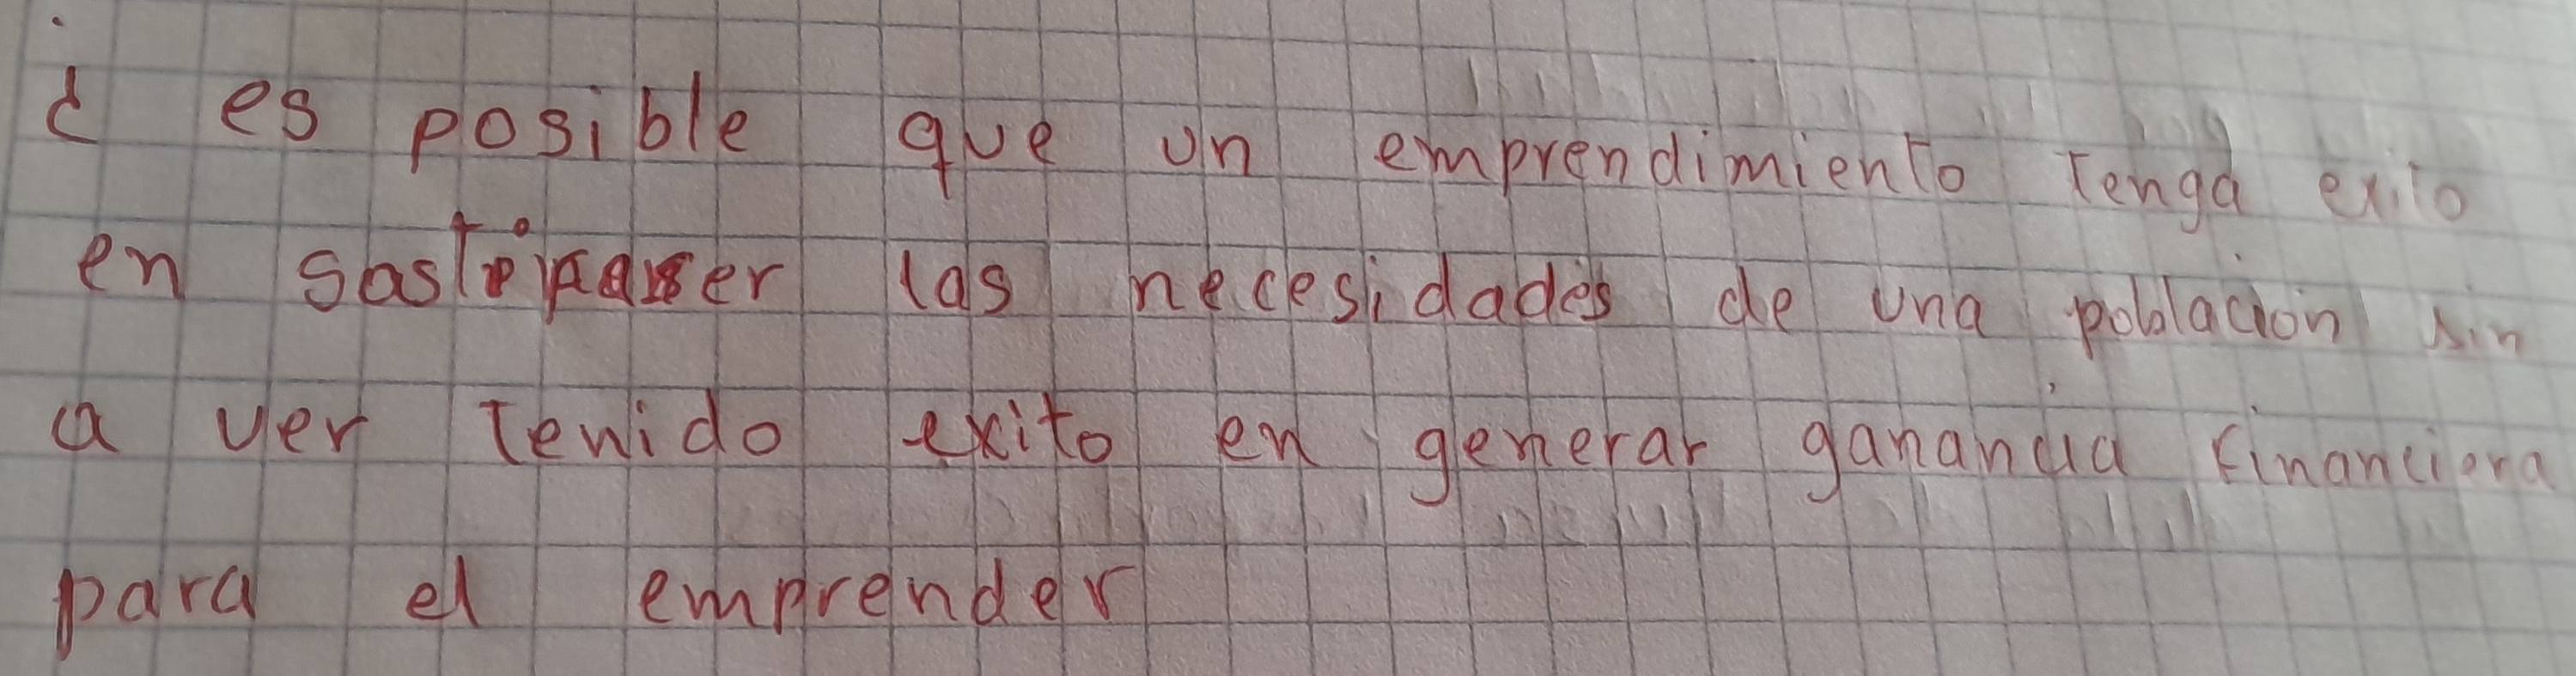 ¿ es posible que un emprendimiento tenga exito
en las necesidades de una poblacion sin
a ver tenido exito en generar ganancia financiera
para el emprender